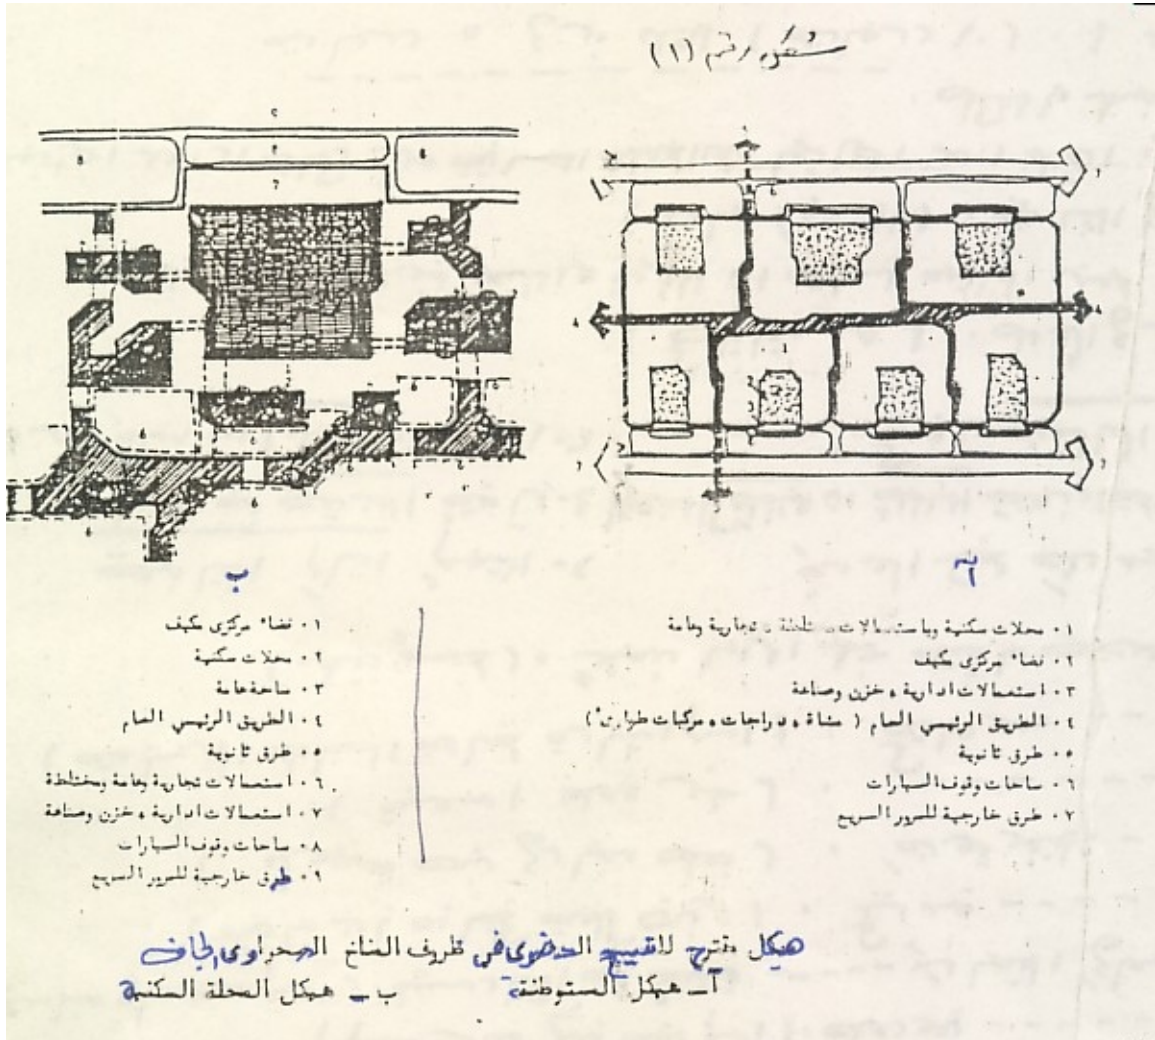 شكل رقم (١)
آ
٠١ محلات سكنية وباستعمالات مختلطة ، تجارية وعامة
٠٢ فضاء مركزي مكيف
٠٣ استعمالات ادارية ، خزن وصناعة
٠٤ الطريق الرئيسي العام ( مشاة ، دراجات ، مركبات طوارئ )
٠٥ طرق ثانوية
٠٦ ساحات وقوف السيارات
٠٧ طرق خارجية للمرور السريع
ب
٠١ فضاء مركزي مكيف
٠٢ محلات سكنية
٠٣ ساحة عامة
٠٤ الطريق الرئيسي العام
٠٥ طرق ثانوية
٠٦ استعمالات تجارية وعامة ومختلطة
٠٧ استعمالات ادارية ، خزن وصناعة
٠٨ ساحات وقوف السيارات
٠٩ طرق خارجية للمرور السريع
هيكل مقترح للنسيج الحضري في ظروف المناخ الصحراوي الجاف
آ ـ هيكل المستوطنة ب ـ هيكل المحلة السكنية